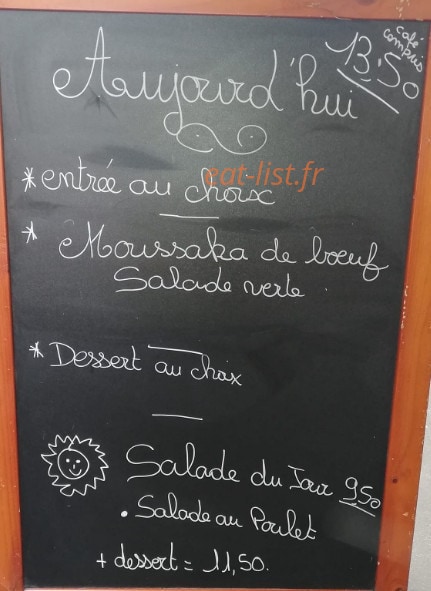 Aujourd'hui
13.50
café
compris
* entrée au choix
eat-list.fr
* Moussaka de bœuf
Salade verte
* Dessert au choix
Salade du Jour 9.50
• Salade au Poulet
+ dessert = 11,50.